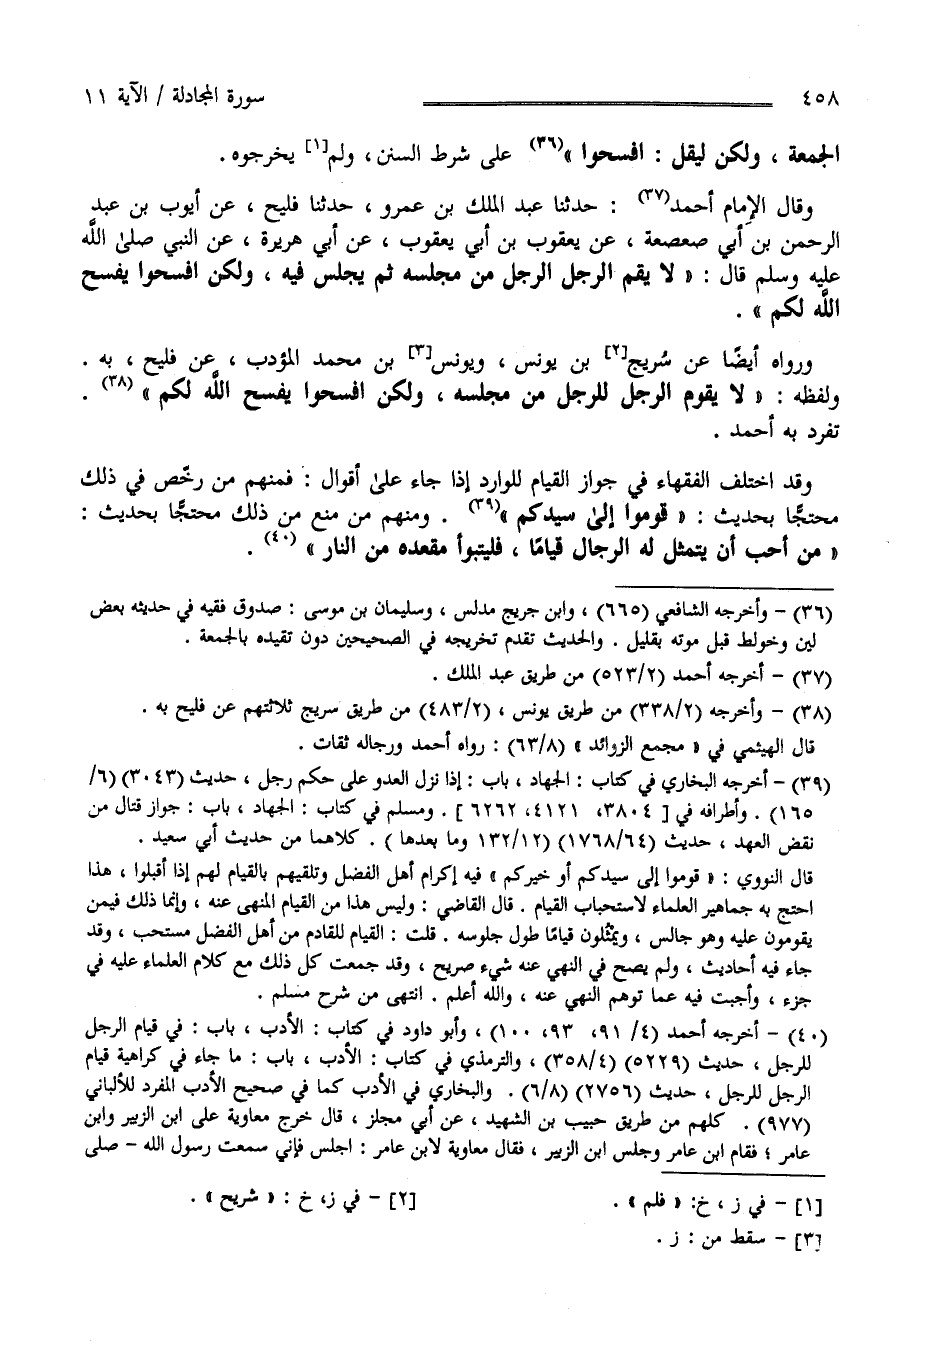 ٤٥٨ سورة المجادلة / الآية ١١
الجمعة ، ولكن ليقل : افسحوا »(٣٦) على شرط السنن ، ولم[١] يخرجوه .
وقال الإمام أحمد(٣٧) : حدثنا عبد الملك بن عمرو ، حدثنا فليح ، عن أيوب بن عبد
الرحمن بن أبي صعصعة ، عن يعقوب بن أبي يعقوب ، عن أبي هريرة ، عن النبي صلىٰ اللَّه
عليه وسلم قال : « لا يقم الرجل الرجل من مجلسه ثم يجلس فيه ، ولكن افسحوا يفسح
اللَّه لكم » .
ورواه أيضًا عن سُريج[٢] بن يونس ، ويونس[٣] بن محمد المؤدب ، عن فليح ، به .
ولفظه : « لا يقوم الرجل للرجل من مجلسه ، ولكن افسحوا يفسح اللَّه لكم »(٣٨) .
تفرد به أحمد .
وقد اختلف الفقهاء في جواز القيام للوارد إذا جاء علىٰ أقوال : فمنهم من رخّص في ذلك
محتجًّا بحديث : « قوموا إلىٰ سيدكم »(٣٩) . ومنهم من منع من ذلك محتجًّا بحديث :
« من أحب أن يتمثل له الرجال قيامًا ، فليتبوأ مقعده من النار »(٤٠) .
(٣٦) - وأخرجه الشافعي (٦٦٥) ، وابن جريج مدلس ، وسليمان بن موسى : صدوق فقيه في حديثه بعض
لين وخولط قبل موته بقليل . والحديث تقدم تخريجه في الصحيحين دون تقيده بالجمعة .
(٣٧) - أخرجه أحمد (٥٢٣/٢) من طريق عبد الملك .
(٣٨) - وأخرجه (٣٣٨/٢) من طريق يونس ، (٤٨٣/٢) من طريق سريج ثلاثتهم عن فليح به .
قال الهيثمي في « مجمع الزوائد » (٦٣/٨) : رواه أحمد ورجاله ثقات .
(٣٩) - أخرجه البخاري في كتاب : الجهاد ، باب : إذا نزل العدو على حكم رجل ، حديث (٣٠٤٣) (٦/
١٦٥) . وأطرافه في [ ٣٨٠٤، ٤١٢١، ٦٢٦٢ ] . ومسلم في كتاب : الجهاد ، باب : جواز قتال من
نقض العهد ، حديث (١٧٦٨/٦٤) (١٣٢/١٢ وما بعدها ) . كلاهما من حديث أبي سعيد .
قال النووي : « قوموا إلى سيدكم أو خيركم » فيه إكرام أهل الفضل وتلقيهم بالقيام لهم إذا أقبلوا ، هذا
احتج به جماهير العلماء لاستحباب القيام . قال القاضي : وليس هذا من القيام المنهى عنه ، وإنما ذلك فيمن
يقومون عليه وهو جالس ، ويمثّلون قيامًا طول جلوسه . قلت : القيام للقادم من أهل الفضل مستحب ، وقد
جاء فيه أحاديث ، ولم يصح في النهي عنه شيء صريح ، وقد جمعت كل ذلك مع كلام العلماء عليه في
جزء ، وأجبت فيه عما توهم النهي عنه ، والله أعلم . انتهى من شرح مسلم .
(٤٠) - أخرجه أحمد (٤/ ٩١، ٩٣، ١٠٠) ، وأبو داود في كتاب : الأدب ، باب : في قيام الرجل
للرجل ، حديث (٥٢٢٩) (٣٥٨/٤) ، والترمذي في كتاب : الأدب ، باب : ما جاء في كراهية قيام
الرجل للرجل ، حديث (٢٧٥٦) (٦/٨) . والبخاري في الأدب كما في صحيح الأدب المفرد للألباني
(٩٧٧) . كلهم من طريق حبيب بن الشهيد ، عن أبي مجلز ، قال خرج معاوية على ابن الزبير وابن
عامر ؛ فقام ابن عامر وجلس ابن الزبير ، فقال معاوية لابن عامر : اجلس فإني سمعت رسول الله - صلى
[١] - في ز ، خ: « فلم » . [٢] - في ز، خ : « شريح » .
[٣] - سقط من : ز .